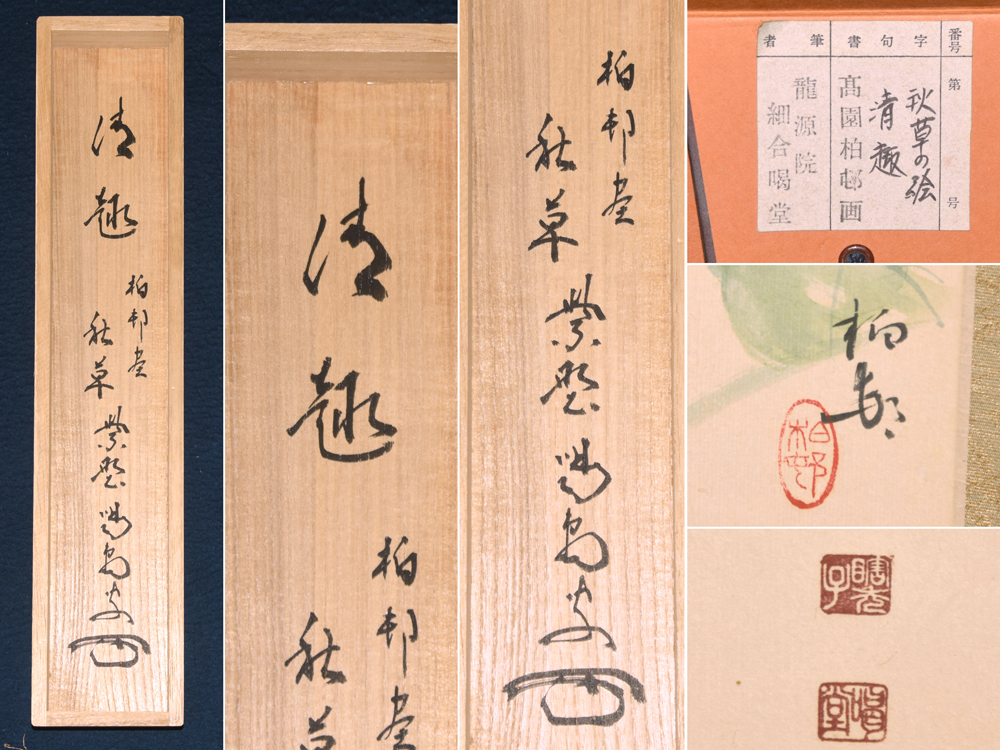 清趣
柏邨画
秋草 紫野
清趣
柏邨画
秋草
柏邨画
秋草 紫野
番号 第 号
字句書
秋草の絵
清趣
髙園柏邨画
筆者
龍源院
細合喝堂
柏邨
柏邨
瞎禿子
喝堂